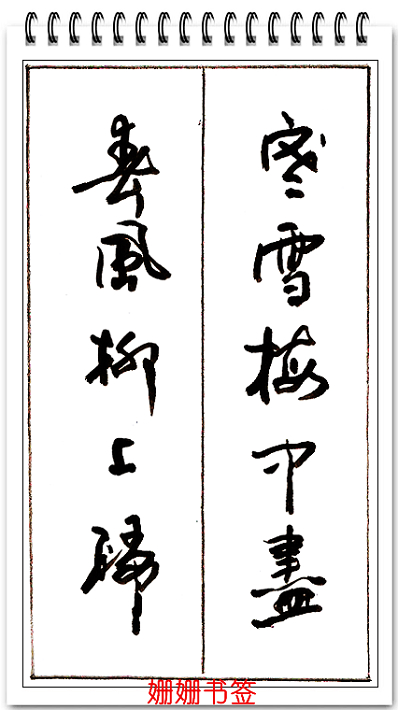 寒雪梅中盡
春風柳上歸
姗姗书签